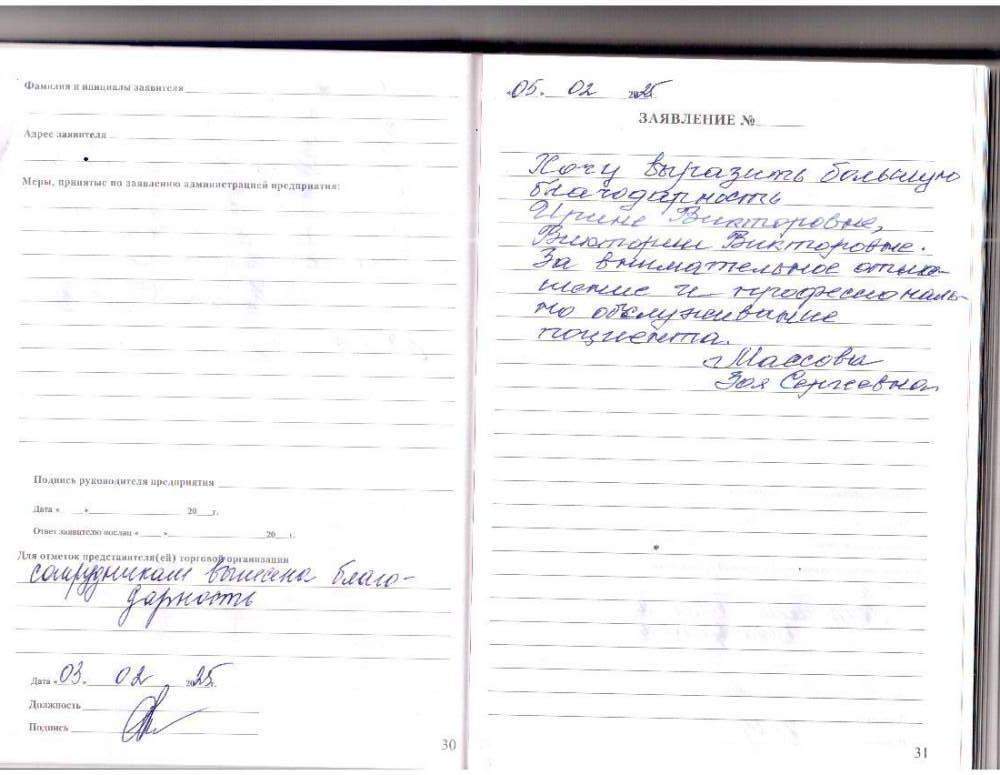 Фамилия и инициалы заявителя
Адрес заявителя
Меры, принятые по заявлению администрацией предприятия:
Подпись руководителя предприятия
Дата « » 20 г.
Ответ заявителю послан « » 20 г.
Для отметок представителя(ей) торговой организации
сотрудникам вынесена благо-
дарность
Дата «03. 02 2025.
Должность
Подпись
30
«05. 02 2025.
ЗАЯВЛЕНИЕ №
Хочу выразить большую
благодарность
Ирине Викторовне,
Виктории Викторовне.
За внимательное отно-
шение и профессиональ-
но обслуживание
поциента.
Зоя Сергеевна
31